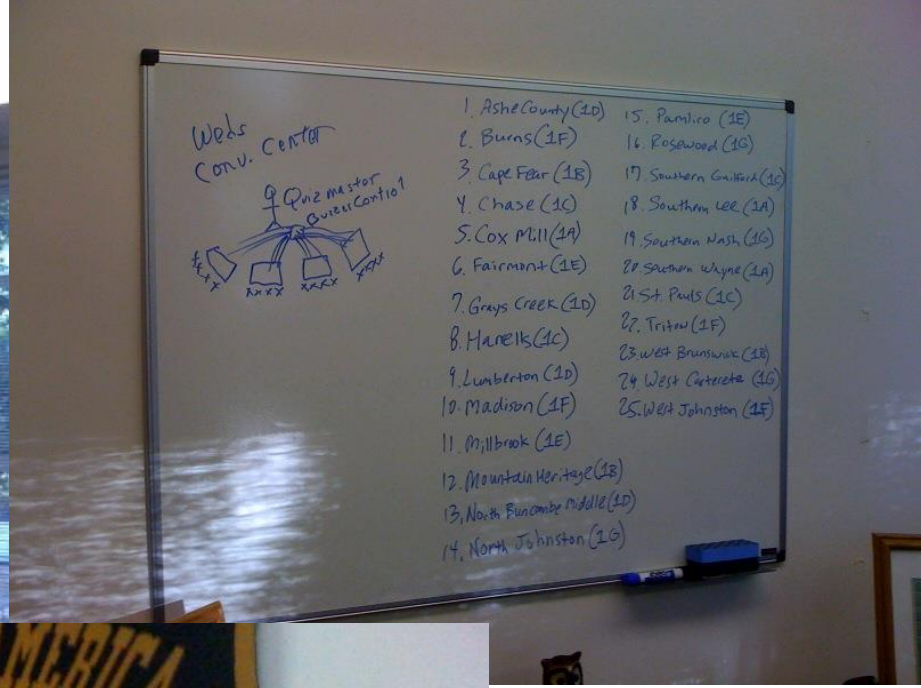 Weds
Conv. Center
Quizmaster
Buzzer Control
x x x x
x x x x
x x x x
x x x x
1. Ashe County (1D)
2. Burns (1F)
3. Cape Fear (1B)
4. Chase (1C)
5. Cox Mill (1A)
6. Fairmont (1E)
7. Grays Creek (1D)
8. Harells (1C)
9. Lumberton (1D)
10. Madison (1F)
11. Millbrook (1E)
12. Mountain Heritage (1B)
13. North Buncombe Middle (1D)
14. North Johnston (1G)
15. Pamlico (1E)
16. Rosewood (1G)
17. Southern Guilford (1C)
18. Southern Lee (1A)
19. Southern Nash (1G)
20. Southern Wayne (1A)
21 St. Pauls (1C)
22. Triton (1F)
23. West Brunswick (1B)
24. West Carterete (1G)
25. West Johnston (1F)
MERICA